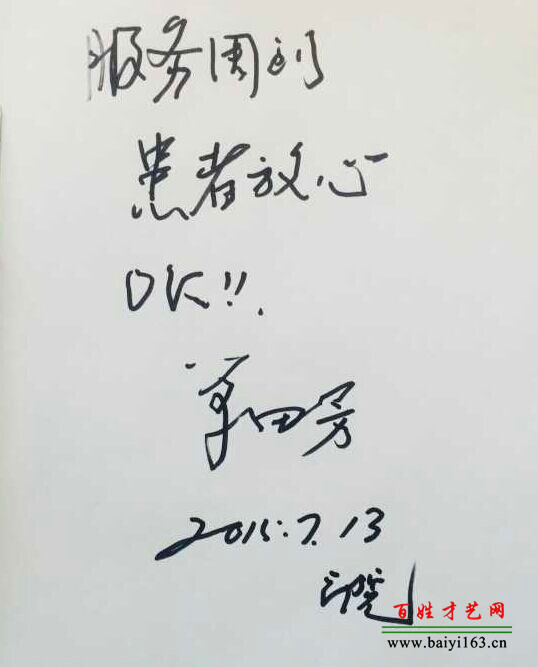 服务周到
患者放心
OK!!.
单田芳
2015.7.13
百姓才艺网
www.baiyi163.cn